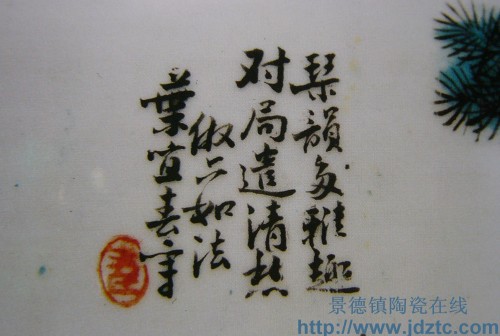 琹韻多雅趣
对局遣清愁
倣六如法
葉宜春
景德镇陶瓷在线
http://www.jdztc.com